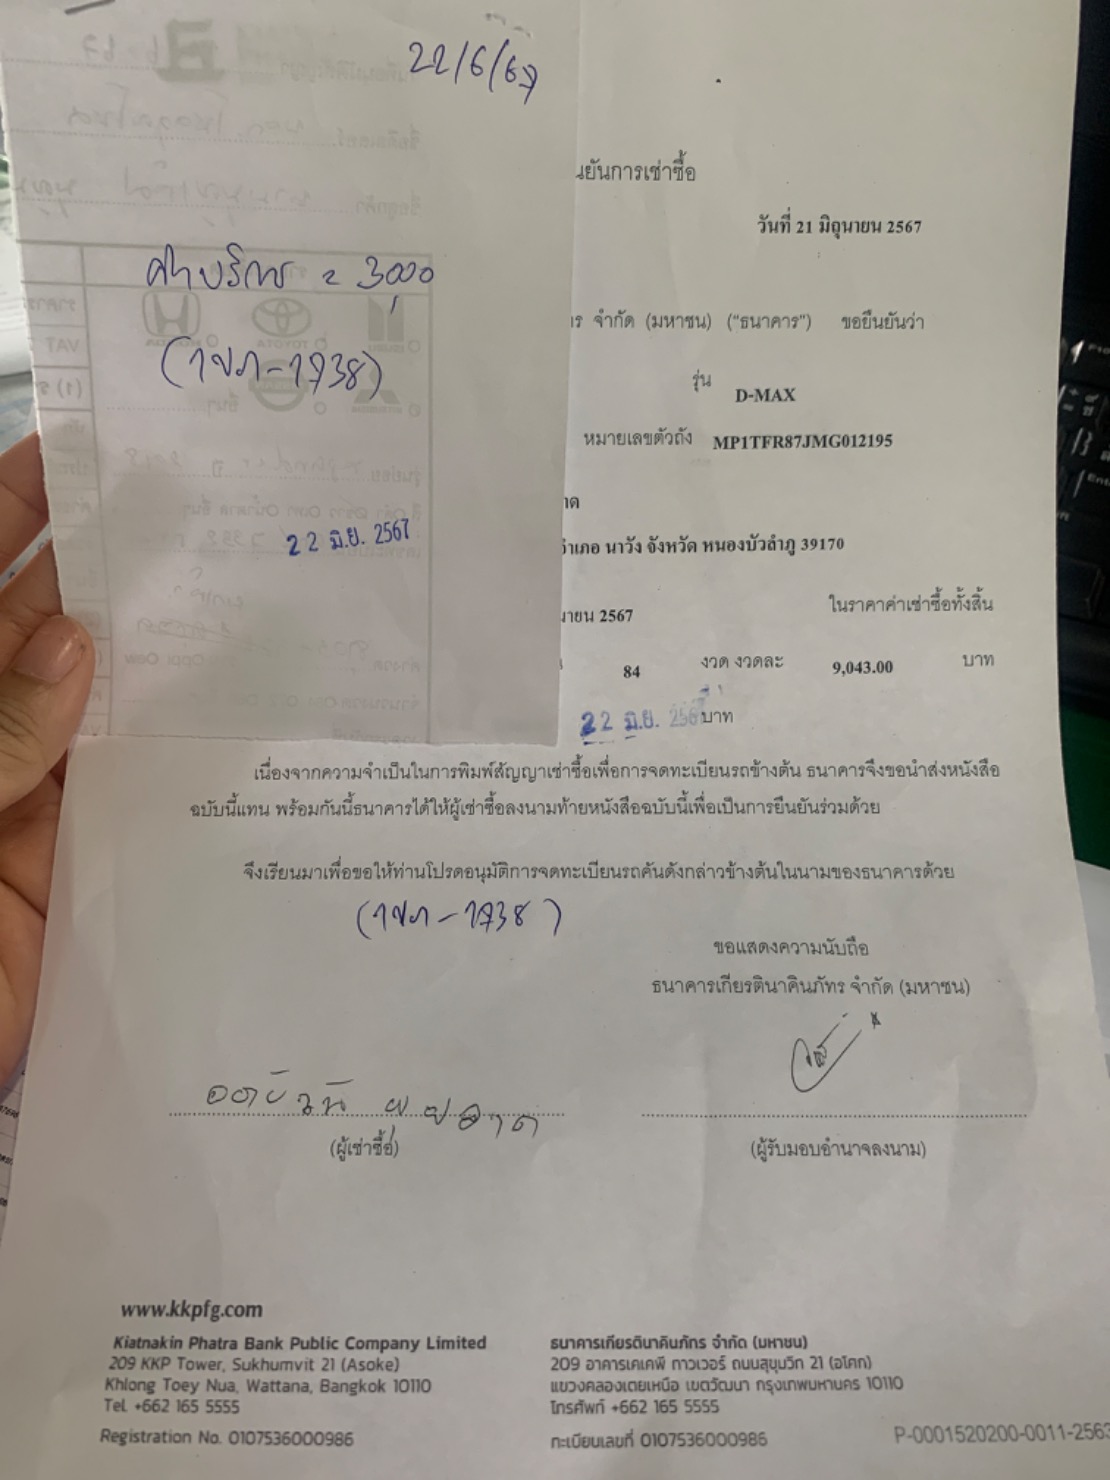 22/6/67
ค่าบริการ = 3000
(1ขภ-1738)
22 มิ.ย. 2567
ยันการเช่าซื้อ
วันที่ 21 มิถุนายน 2567
จำกัด (มหาชน) ("ธนาคาร") ขอยืนยันว่า
รุ่น D-MAX
หมายเลขตัวถัง MP1TFR87JMG012195
าด
อำเภอ นาวัง จังหวัด หนองบัวลำภู 39170
ายน 2567 ในราคาค่าเช่าซื้อทั้งสิ้น
84 งวด งวดละ 9,043.00 บาท
22 มิ.ย. 256 บาท
เนื่องจากความจำเป็นในการพิมพ์สัญญาเช่าซื้อเพื่อการจดทะเบียนรถข้างต้น ธนาคารจึงขอนำส่งหนังสือ
ฉบับนี้แทน พร้อมกันนี้ธนาคารได้ให้ผู้เช่าซื้อลงนามท้ายหนังสือฉบับนี้เพื่อเป็นการยืนยันร่วมด้วย
จึงเรียนมาเพื่อขอให้ท่านโปรดอนุมัติการจดทะเบียนรถคันดังกล่าวข้างต้นในนามของธนาคารด้วย
(1ขภ-1738)
ขอแสดงความนับถือ
ธนาคารเกียรตินาคินภัทร จำกัด (มหาชน)
(ผู้เช่าซื้อ) (ผู้รับมอบอำนาจลงนาม)
www.kkpfg.com
Kiatnakin Phatra Bank Public Company Limited
209 KKP Tower, Sukhumvit 21 (Asoke)
Khlong Toey Nua, Wattana, Bangkok 10110
Tel. +662 165 5555
Registration No. 0107536000986
ธนาคารเกียรตินาคินภัทร จำกัด (มหาชน)
209 อาคารเคเคพี ทาวเวอร์ ถนนสุขุมวิท 21 (อโศก)
แขวงคลองเตยเหนือ เขตวัฒนา กรุงเทพมหานคร 10110
โทรศัพท์ +662 165 5555
ทะเบียนเลขที่ 0107536000986
P-0001520200-0011-2563